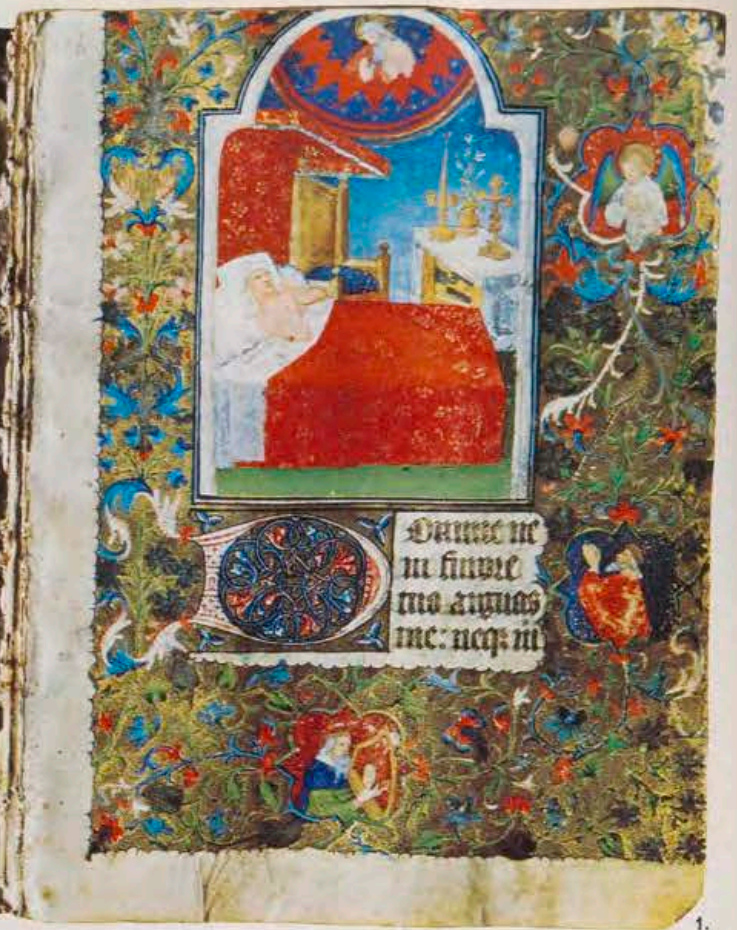 Domine ne
in furore
tuo arguas
me: neq; in
1.